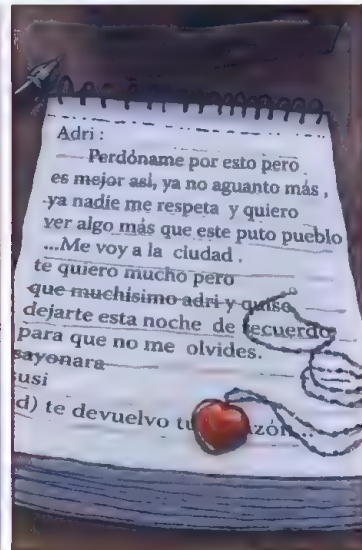 Adri :
Perdóname por esto pero
es mejor así, ya no aguanto más ,
ya nadie me respeta y quiero
ver algo más que este puto pueblo
...Me voy a la ciudad .
te quiero mucho pero
que muchísimo adri y quise
dejarte esta noche de recuerdo
para que no me olvides.
sayonara
susi
d) te devuelvo